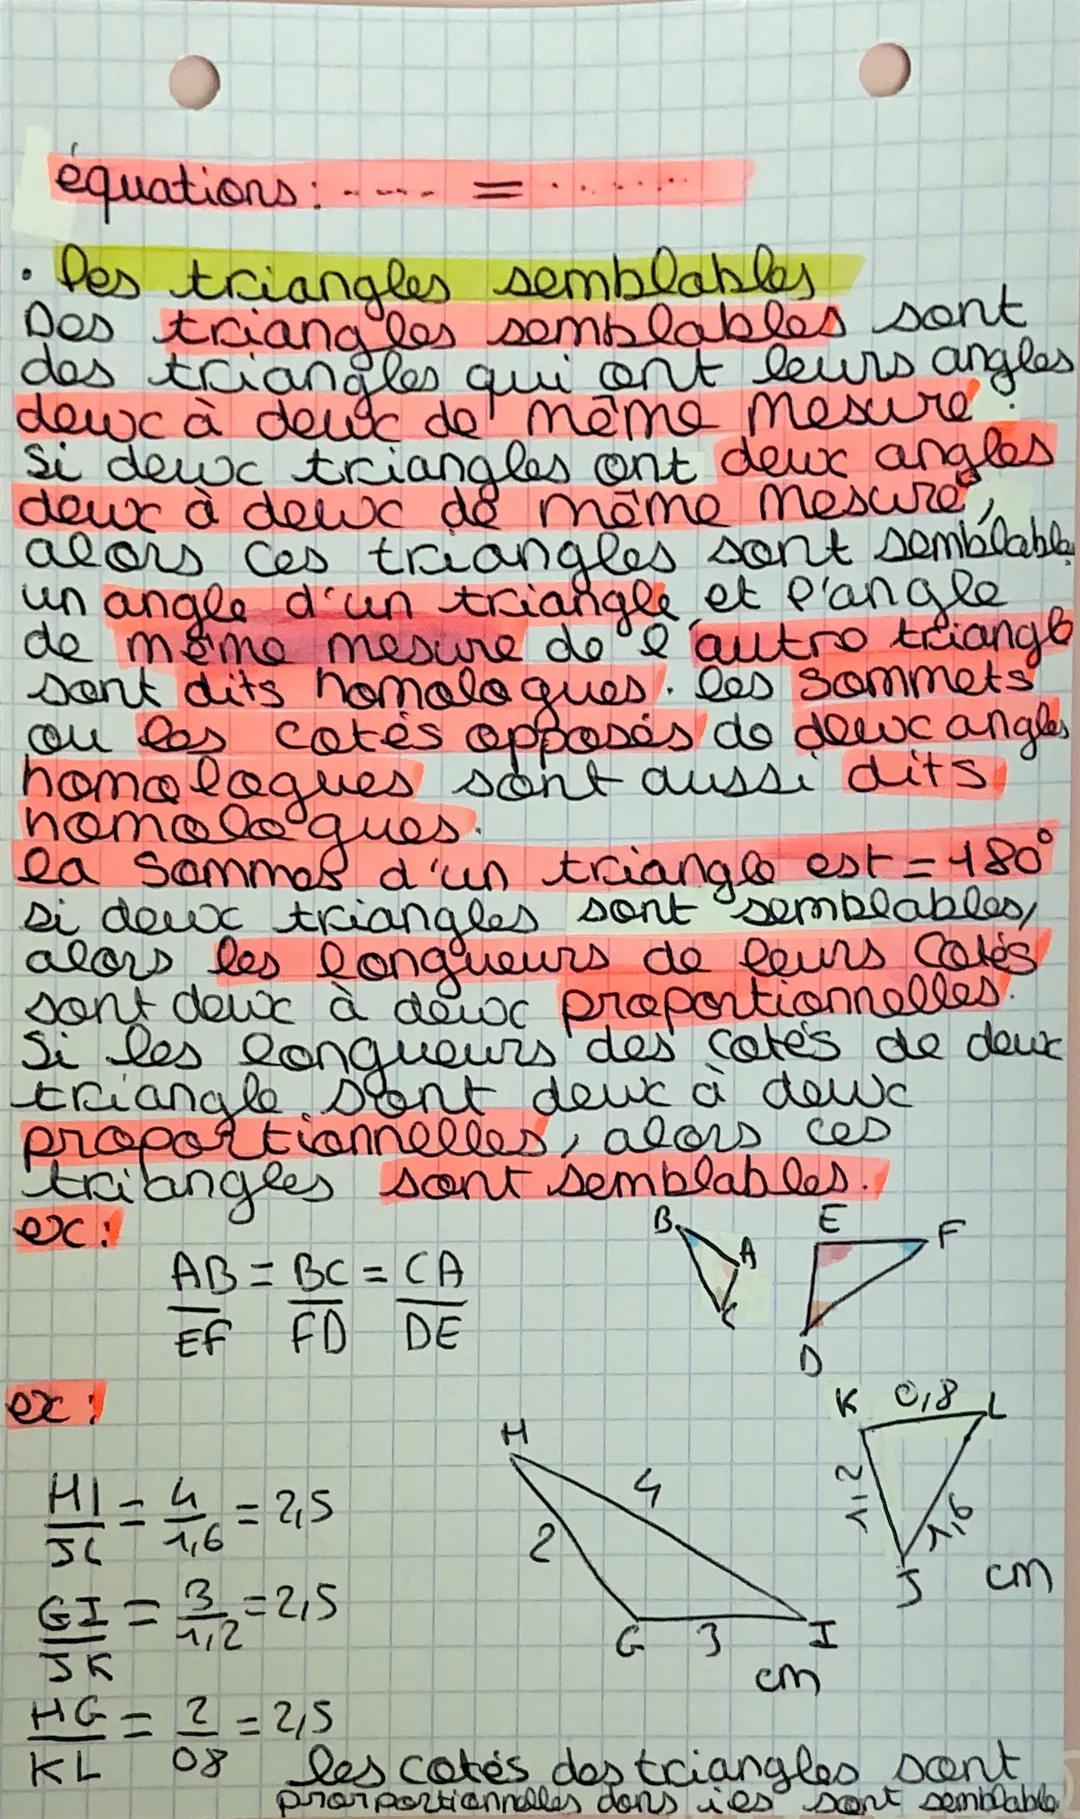 équations: ---- = .......
• Des triangles semblables
Des triangles semblables sont
des triangles qui ont leurs angles
deux à deux de même mesure.
si deux triangles ont deux angles
deux à deux de même mesure,
alors ces triangles sont semblable
un angle d'un triangle et l'angle
de même mesure de l'autre triangle
sont dits homologues. les sommets
ou les cotés opposés de deux angles
homologues sont aussi dits
homologues.
la sommes d'un triangle est = 180°
si deux triangles sont semblables,
alors les longueurs de leurs cotés
sont deux à deux proportionnelles.
Si les longueurs des cotés de deux
triangle sont deux à deux
proportionnelles, alors ces
triangles sont semblables.
ex:
AB = BC = CA
EF FD DE
B A C
E F D
ex:
HI = 4 = 2,5
JL 1,6
GI = 3 = 2,5
JK 1,2
HG = 2 = 2,5
KL 08
H 4 2 G 3 I
cm
K 0,8 L
1,2 1,6
J cm
les cotés des triangles sont
proportionnelles dons iles sont semblable